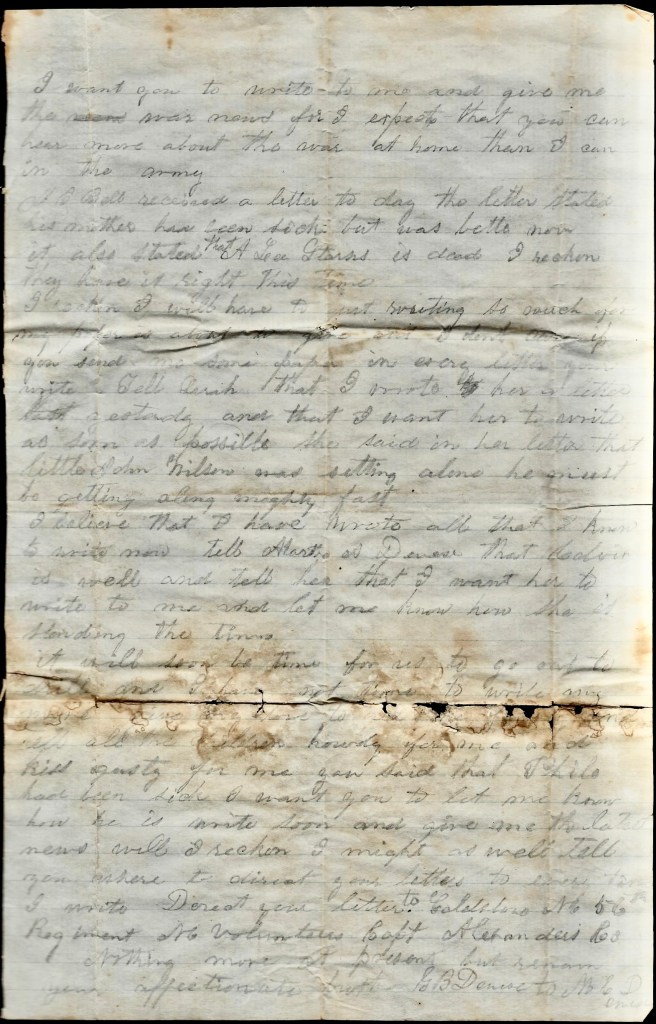 I want you to write to me and give me
the news war news for I expect that you can
hear more about the war at home than I can
in the army
Bell received a letter to day the letter stated
his mother had been sick but was bette now
it also stated that A Lee Starns is dead I reckon
they have it right this time
I reckon I will have to quit writing so much for
my paper is about to give out I dont care if
you send me some paper in every letter you
write Tell that I wrote to her a letter
last yestady and that I want her to write
as soon as possible she said in her letter that
little John Wilson was setting alone he must
be getting along mighty fast
I believe that I have wrote all that I know
to write now tell Martha Devese that
is well and tell her that I want her to
write to me and let me know how she is
standing the times
it will soon be time for us to go out to
drill and I have not time to write my
have to
all the children howdy for me and
kiss for me you said that Philo
had been sick I want you to let me know
how he is write soon and give me the late
news well I reckon I might as well tell
you where to direct your letters to every
I write Derect your letter to Goldsboro NC 5
Regiment NC Volunteers Capt Alexanders Co
Nothing more at present but remain
your affectionate CB to